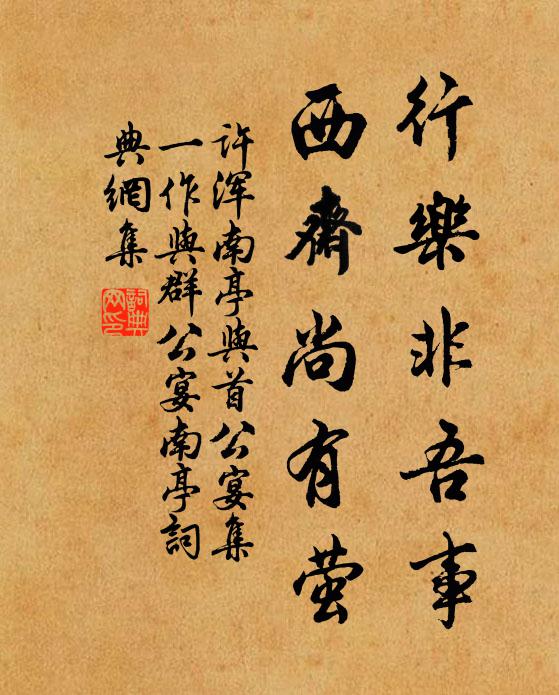 行樂非吾事
西齋尚有萤
许浑南亭與首公宴集
一作與群公宴南亭詞
典網集
詞典網印